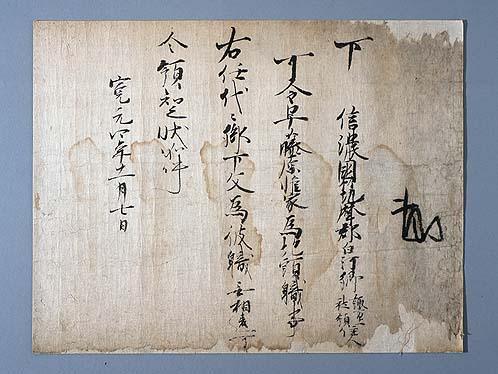 下 信濃國筑摩郡白河郷
可令早藤原惟家為地頭職事
右任代々御下文為彼職無相違可
令領知之状如件
寛元四年十二月七日